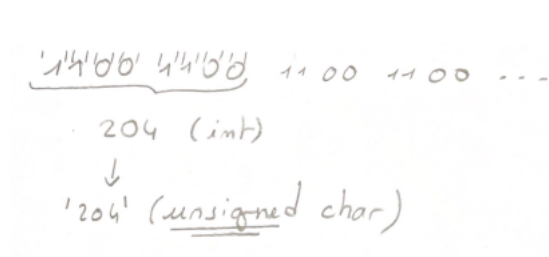 '1'1'0'0' '1'1'0'0' 1100 1100 ...
204 (int)
↓
'204' (unsigned char)